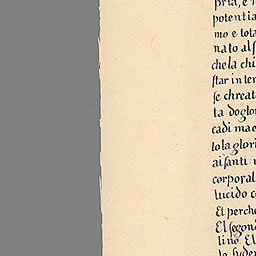 pria, e
potentia
mo e tota
nato al
che la chi
ſtar in ter
ſe chreat
ta doglo
cadi mae
tola glori
ai ſanti
corporal
lucido c
Et perche
El ſegon
lino El